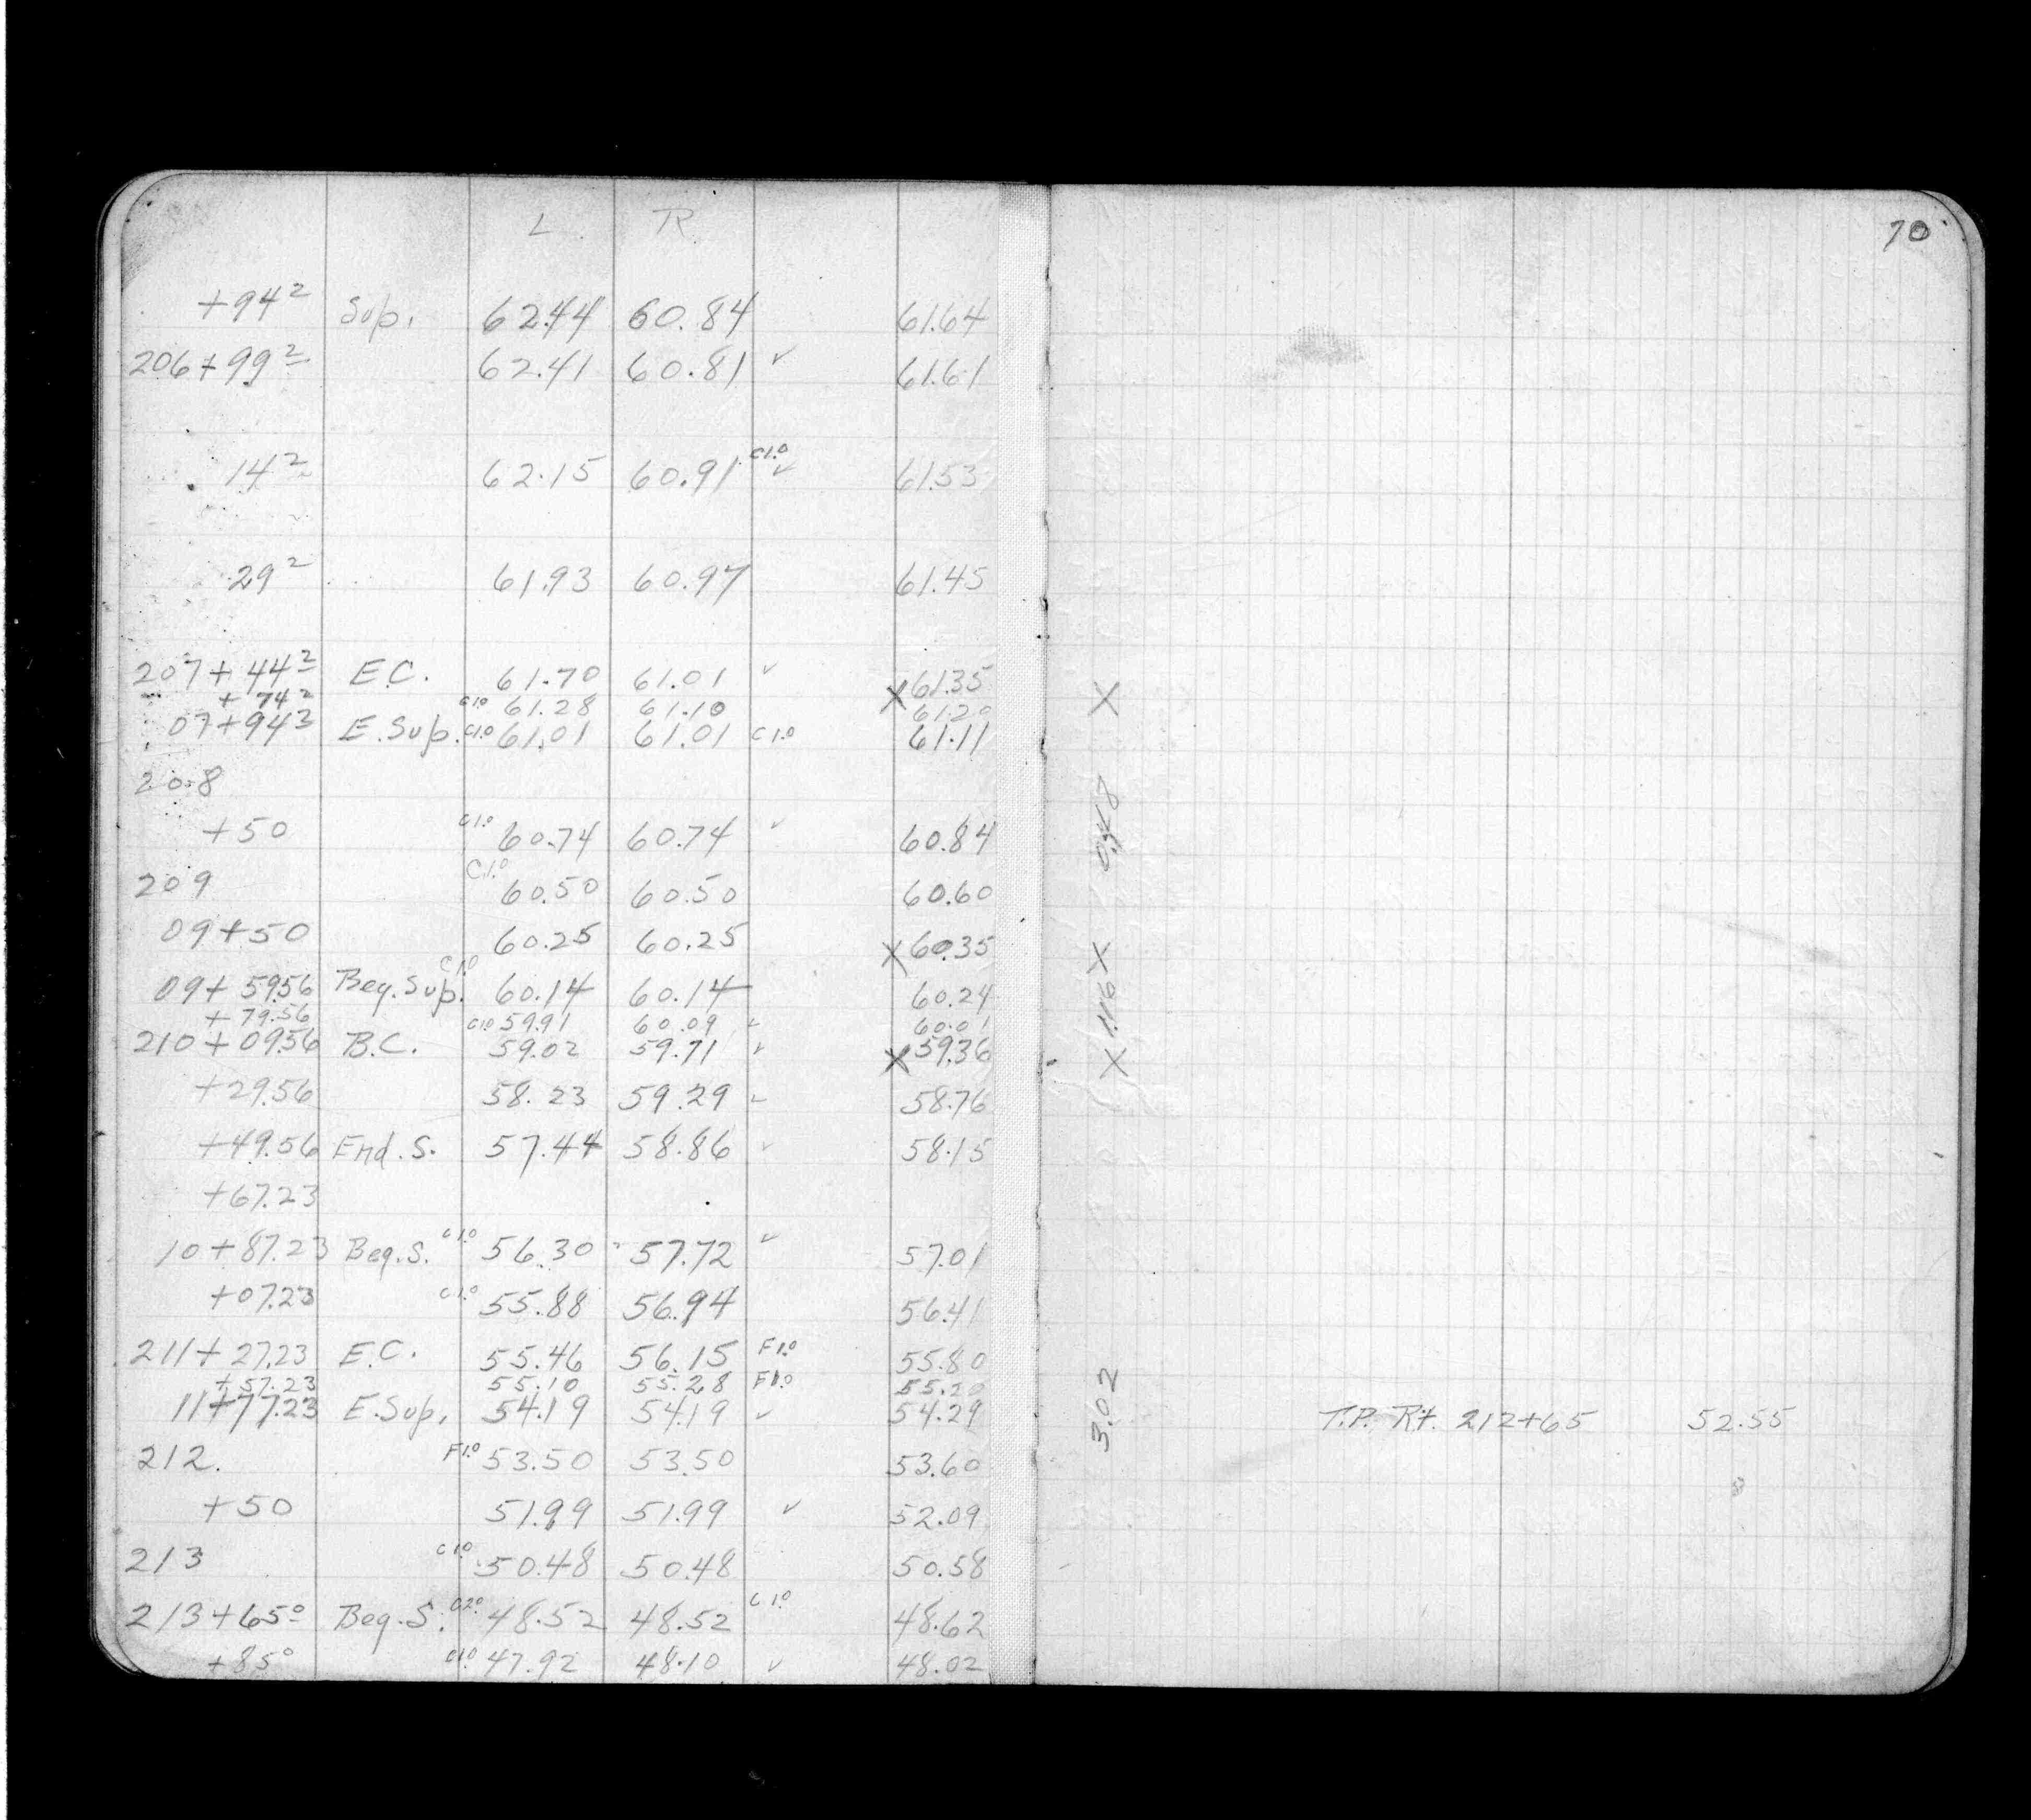 L R
70
+94² Sup. 62.44 60.84 61.64
206+99² 62.41 60.81 ✓ 61.61
14² 62.15 60.91 C1.0 ✓ 61.53
29² 61.93 60.97 61.45
207+44² E.C. 61.70 61.01 ✓ X 61.35
+74² C1.0 61.28 61.10 61.20
07+94² E.Sup. C1.0 61.01 61.01 C1.0 61.11
208
+50 C1.0 60.74 60.74 ✓ 60.84
209 C1.0 60.50 60.50 60.60
09+50 60.25 60.25 X 60.35
09+59.56 Beg.Sup. C1.0 60.14 60.14 60.24
+79.56 C1.0 59.91 60.09 ✓ 60.01
210+09.56 B.C. 59.02 59.71 ✓ X 59.36
+29.56 58.23 59.29 ✓ 58.76
+49.56 End.S. 57.44 58.86 ✓ 58.15
+67.23
10+87.23 Beg.S. C1.0 56.30 57.72 ✓ 57.01
+07.23 C1.0 55.88 56.94 56.41
211+27.23 E.C. 55.46 56.15 F1.0 55.80
+57.23 55.10 55.28 F1.0 55.20
11+77.23 E.Sup. 54.19 54.19 ✓ 54.29
212. F1.0 53.50 53.50 53.60
+50 51.99 51.99 ✓ 52.09
213 C1.0 50.48 50.48 50.58
213+65⁰ Beg.S. C2.0 48.52 48.52 C1.0 48.62
+85⁰ C1.0 47.92 48.10 ✓ 48.02
X 0.48 X
X 1.16 X
3.02
T.P. Rt. 212+65 52.55
8